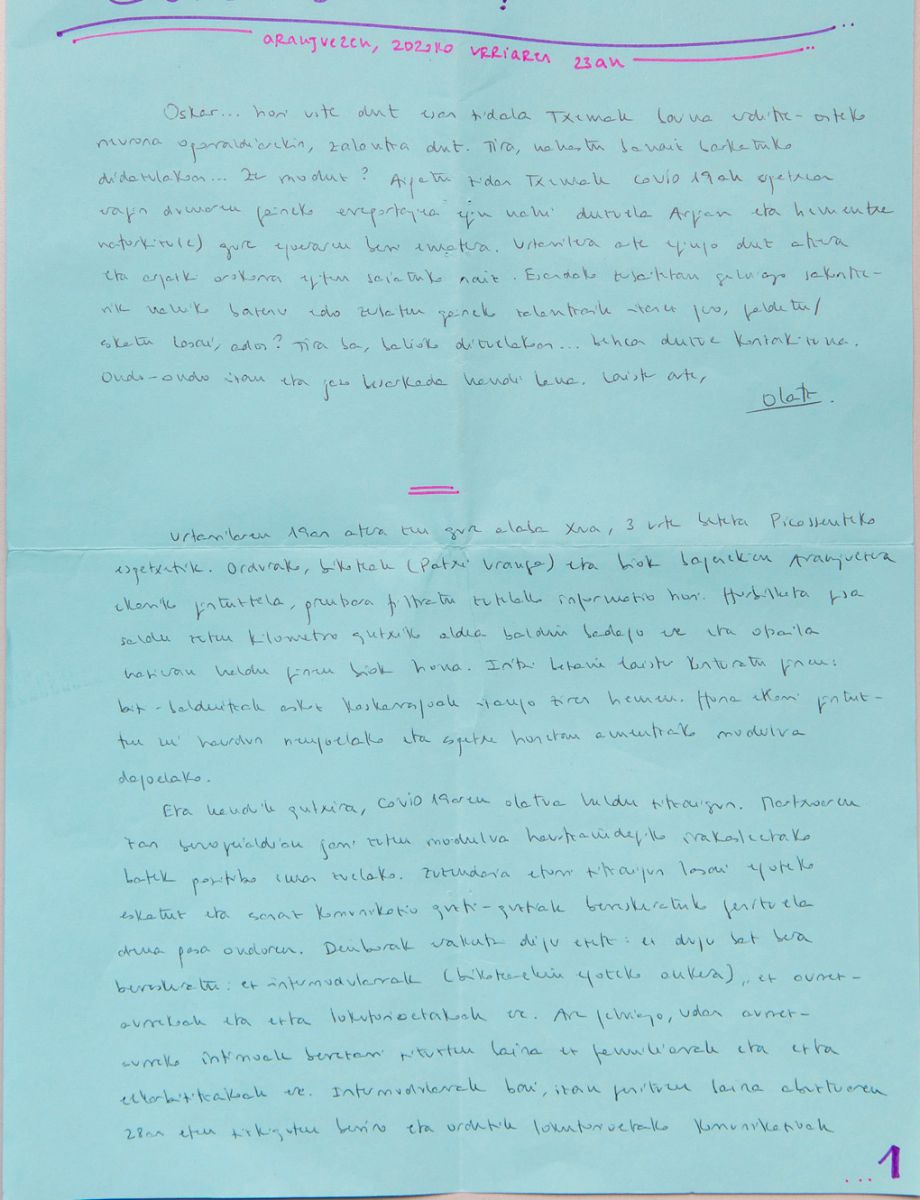 aranjuezen, 2020ko urriaren 23an
Oskar... hori uste dut esan zidala Txemak baina erditze-osteko
neurona operazioarekin, zalantza dut. Tira, nahastu banaiz barkatuko
didazulakoan... Ze moduz? Aipatu zidan Txemak covid 19ak espetxean
izan duenaren gaineko erreportajea egin nahi duzuela Argian eta hementxe
natorkizu(e) gure egoeraren berri ematera. Urtarrilera arte egingo dut atzera
eta argazki orokorra egiten saiatuko naiz. Esandako zerbaitetan gehiago sakontze-
rik nahiko bazenu edo zalantzarik izanez gero, galdetu/
eskatu lasai, ados? Tira ba, baliko dizuelakoan... hementxe duzue kontakizuna.
Ondo-ondo izan eta jaso besarkada handi bana. Laister arte,
Olatz.
Urtarrilaren 19an atera zen gure alaba Xua, 3 urte beteta Picassenteko
espetxetik. Ordurako, bikoteak (Patxi Uranga) eta biok bagenekien Aranjuezera
ekarriko gintuztela, prentsara filtratu zutelako informazio hori. Hurbilketa gisa
saldu zuten kilometro gutxiko aldea baldin badago ere eta otsaila
hasieran heldu ginen biok hona. Iritsi bezain laister konturatu ginen:
bizi-baldintzak askoz kaskarragoak izango ziren hemen. Hona ekarri gintuz-
ten ni haurdun nengoelako eta espetxe honetan amentzako modulua
dagoelako.
Eta handik gutxira, Covid 19aren olatua heldu zitzaigun. Martxoaren
7an berrogeialdian jarri zuten modulua haurtzaindegiko irakasleetako
batek positibo eman zuelako. Zuzendaria etorri zitzaigun lasai egoteko
eskatuz eta esanaz komunikazio guzti-guztiak berreskuratuko genituela
dena pasa ondoren. Denborak erakutsi digu ezetz: ez dugu bat bera
berreskuratu: ez intermodularrak (bikotearekin egoteko aukera), ez aurrez-
aurrekoak eta ezta lokutorioetakoak ere. Are gehiago, udan aurrez-
aurreko intimoak berezarri zituzten baina ez familiarrak eta ezta
elkarbizitzakoak ere. Intermodularrak bai, izan genituen baina abuztuaren
28an eten zizkiguten berriro eta ordutik lokutorioetako komunikazioak
...1